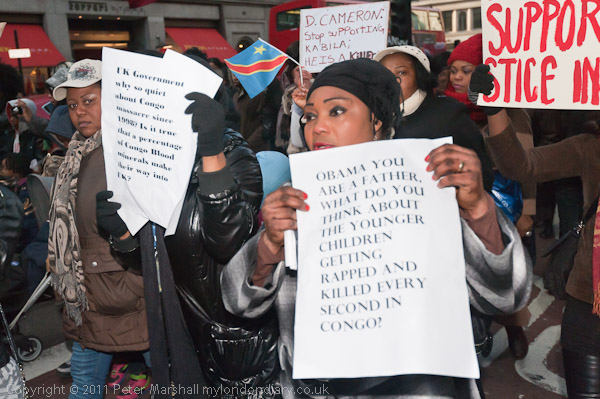 FERRARI
D. CAMERON.
STOP SUPPORTING
KABILA;
HE IS A KILLER
SUPPOR
STICE IN
UK Government
why so quiet
about Congo
massacre since
1998? Is it true
that a percentage
of Congo Blood
minerals make
their way into
UK?
OBAMA YOU
ARE A FATHER,
WHAT DO YOU
THINK ABOUT
THE YOUNGER
CHILDREN
GETTING
RAPPED AND
KILLED EVERY
SECOND IN
CONGO?
Copyright © 2011 Peter Marshall mylondondiary.co.uk